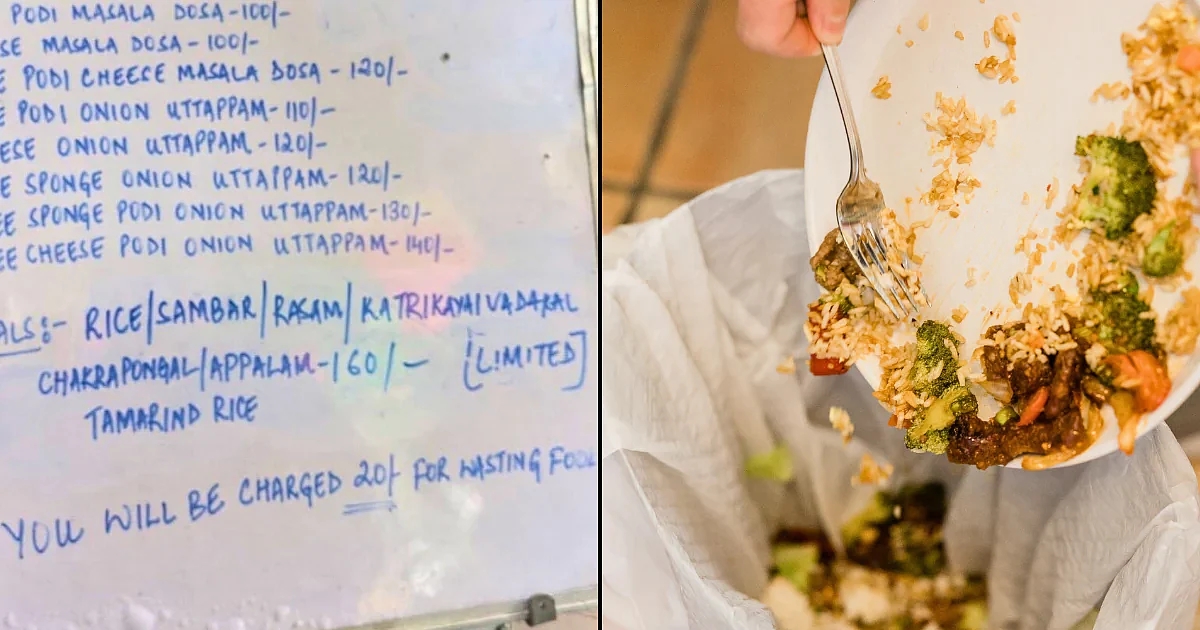 PODI MASALA DOSA-100/-
SE MASALA DOSA - 100/-
E PODI CHEESE MASALA DOSA - 120/-
E PODI ONION UTTAPPAM-110/-
ESE ONION UTTAPPAM - 120/-
E SPONGE ONION UTTAPPAM- 120/-
EE SPONGE PODI ONION UTTAPPAM-130/-
EE CHEESE PODI ONION UTTAPPAM-140/-
ALS:- RICE/SAMBAR/RASAM/KATRIKAYAIVADAKAL
CHAKRAPONGAL/APPALAM-160/- [LIMITED]
TAMARIND RICE
YOU WILL BE CHARGED 20/- FOR WASTING FOOD